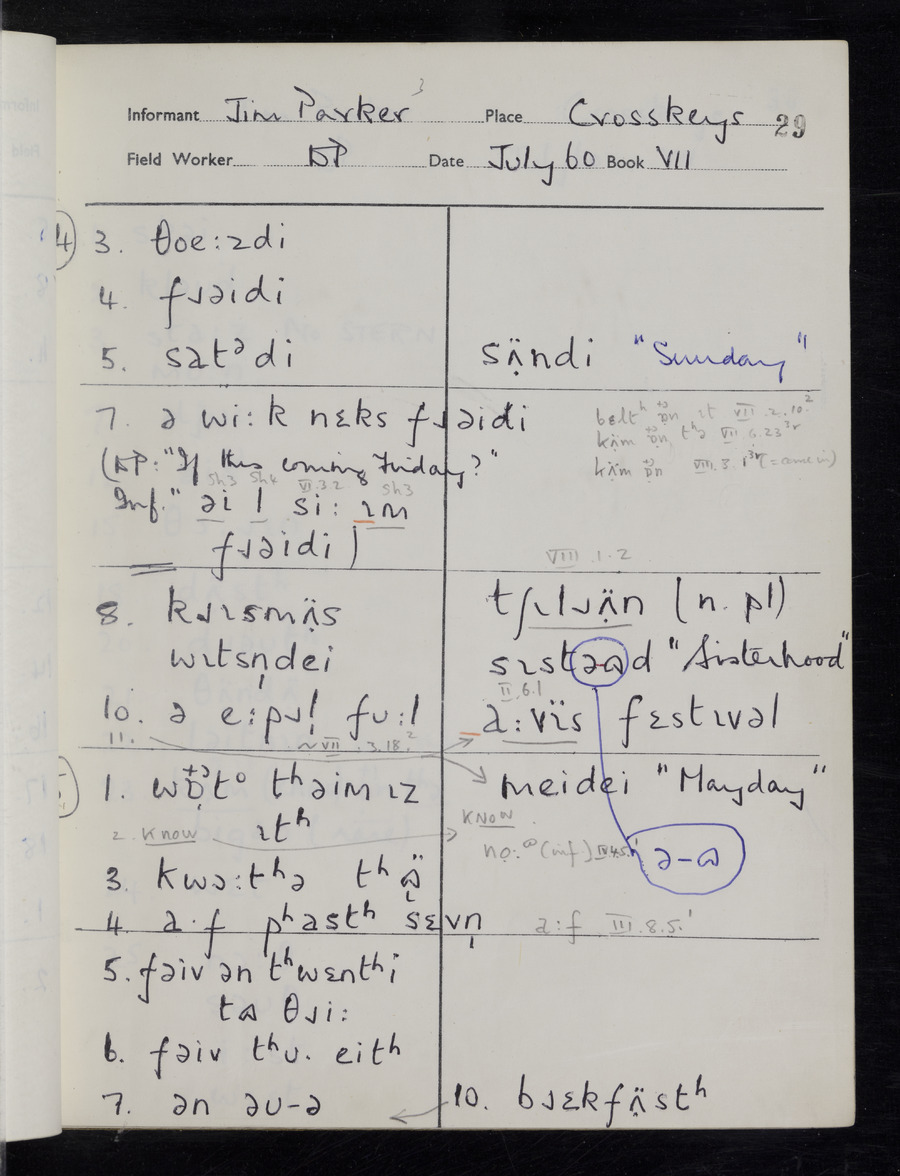 Informant Jim Parker 3 Place Crosskeys 29
Field Worker DP Date July 60 Book VII
4 3. θoe:ɹdi
4. fɹəidi
5. satᵊdi sʌ̈ndi "Sunday"
7. ə wi:k nɛks fɹəidi
(DP: "If this coming Friday?"
Sh3 Sh4 VI.3.2 8 Sh3
Inf. "əi l si: ɪm
fɹəidi)
VII.2.10.²
VII 6.23³ʳ
VIII.3.1³ʳ (=came in)
VIII.1.2
8. kɹɪsmʌ̈s tʃɪlɹʌ̈n (n.pl)
wɪtsn̩dei sɪstəɷd "Sisterhood"
II.6.1
10. ə e:pɹl̩ fu:l a:vïs fɛstɪvəl
11. ~VII.3.18.²
5 1. wɒ̈tᵒ tʰəim ɪz meidei "Mayday"
ɪtʰ
2. Know KNOW
nọ:ᶷ (inf) IV.4.5.¹ ə-ɷ
3. kwə:tʰə tʰɷ̈
4. a·f pʰastʰ sɛvn̩ a:f III.8.5.¹
5. fəiv ən tʰwɛntʰi
tɷ θɹi:
6. fəiv tʰʊ. eitʰ
7. ən əʊ-ə 10. bɹɛkfʌ̈stʰ